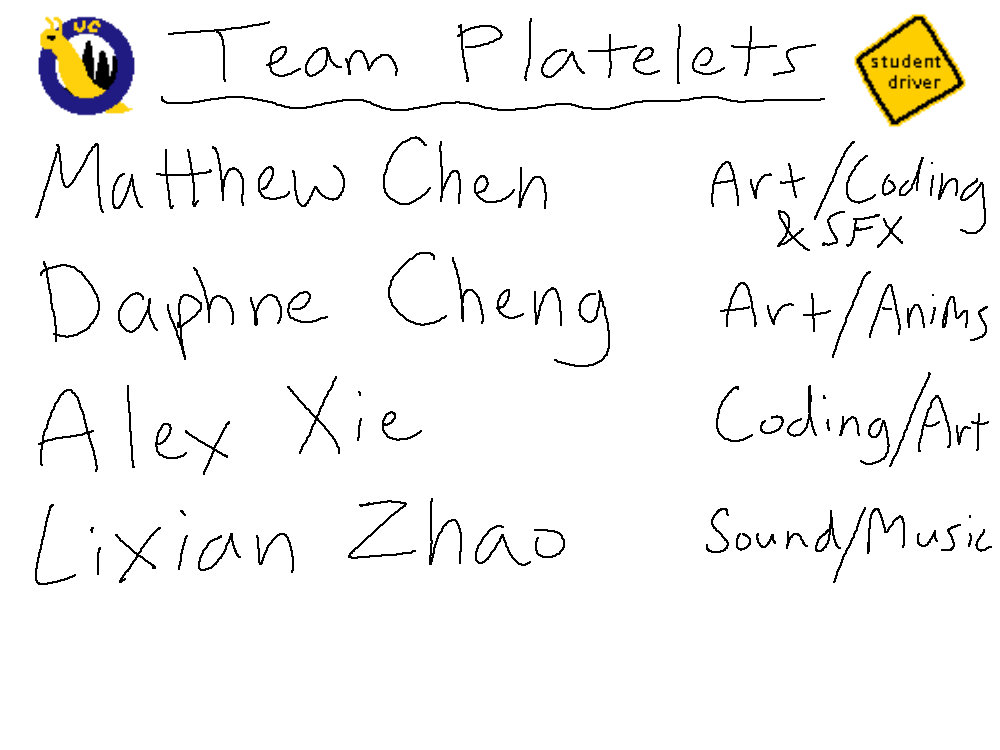 UC
Team Platelets
student
driver
Matthew Chen Art/Coding
& SFX
Daphne Cheng Art/Anims
Alex Xie Coding/Art
Lixian Zhao Sound/Music